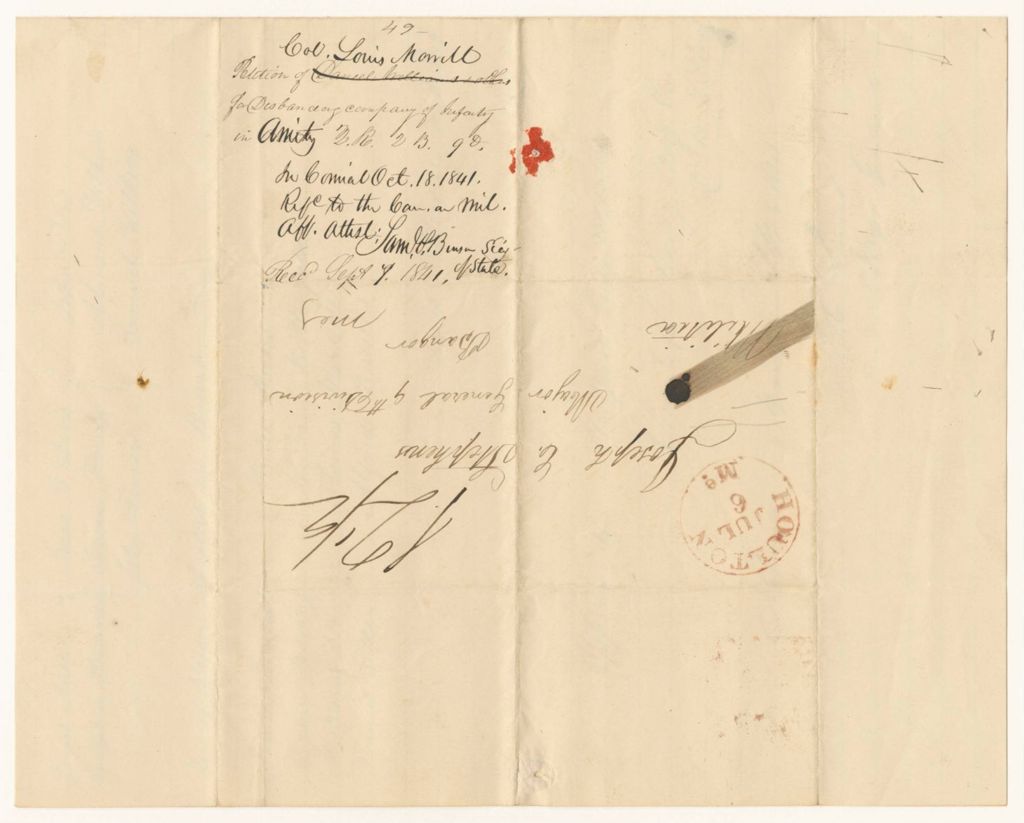 49-
Col. Louis Morrill
Petition of Daniel Williams & others
for Disbanding company of Infantry
in Amity 2. R. 2 B. 9 D.
In Council Oct. 18. 1841.
Refd to the Com. on Mil.
Aff. Attest:
of State.
Recd Sept 7. 1841,
Joseph C. Stephens
Major General 9th Division
Militia
Bangor
Me
HOULTON
Me
JUL
6